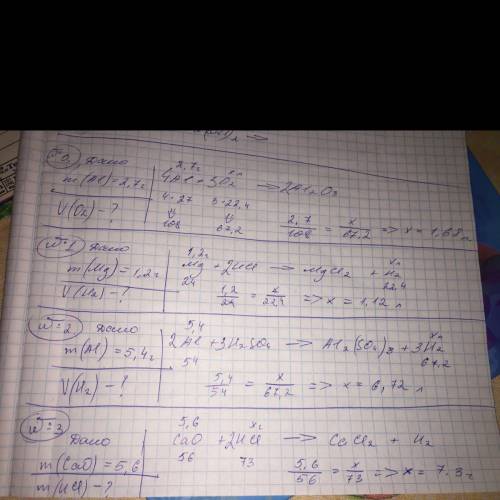 №0 Дано
m(Al)=2,7г
V(O₂) - ?
2,7г xл
4Al + 3O₂ → 2Al₂O₃
4·27 3·22,4
108 67,2
2,7/108 = x/67,2 => x = 1,68л
№1 Дано
m(Mg) = 1,2г
V(H₂) - ?
1,2г xл
Mg + 2HCl → MgCl₂ + H₂
24 22,4
1,2/24 = x/22,4 => x = 1,12 л
№2 Дано
m(Al) = 5,4г
V(H₂) - ?
5,4 xл
2Al + 3H₂SO₄ → Al₂(SO₄)₃ + 3H₂
54 67,2
5,4/54 = x/67,2 => x = 6,72 л
№3 Дано
m(CaO) = 5,6
m(HCl) - ?
5,6 xг
CaO + 2HCl → CaCl₂ + H₂
56 73
5,6/56 = x/73 => x = 7.3г